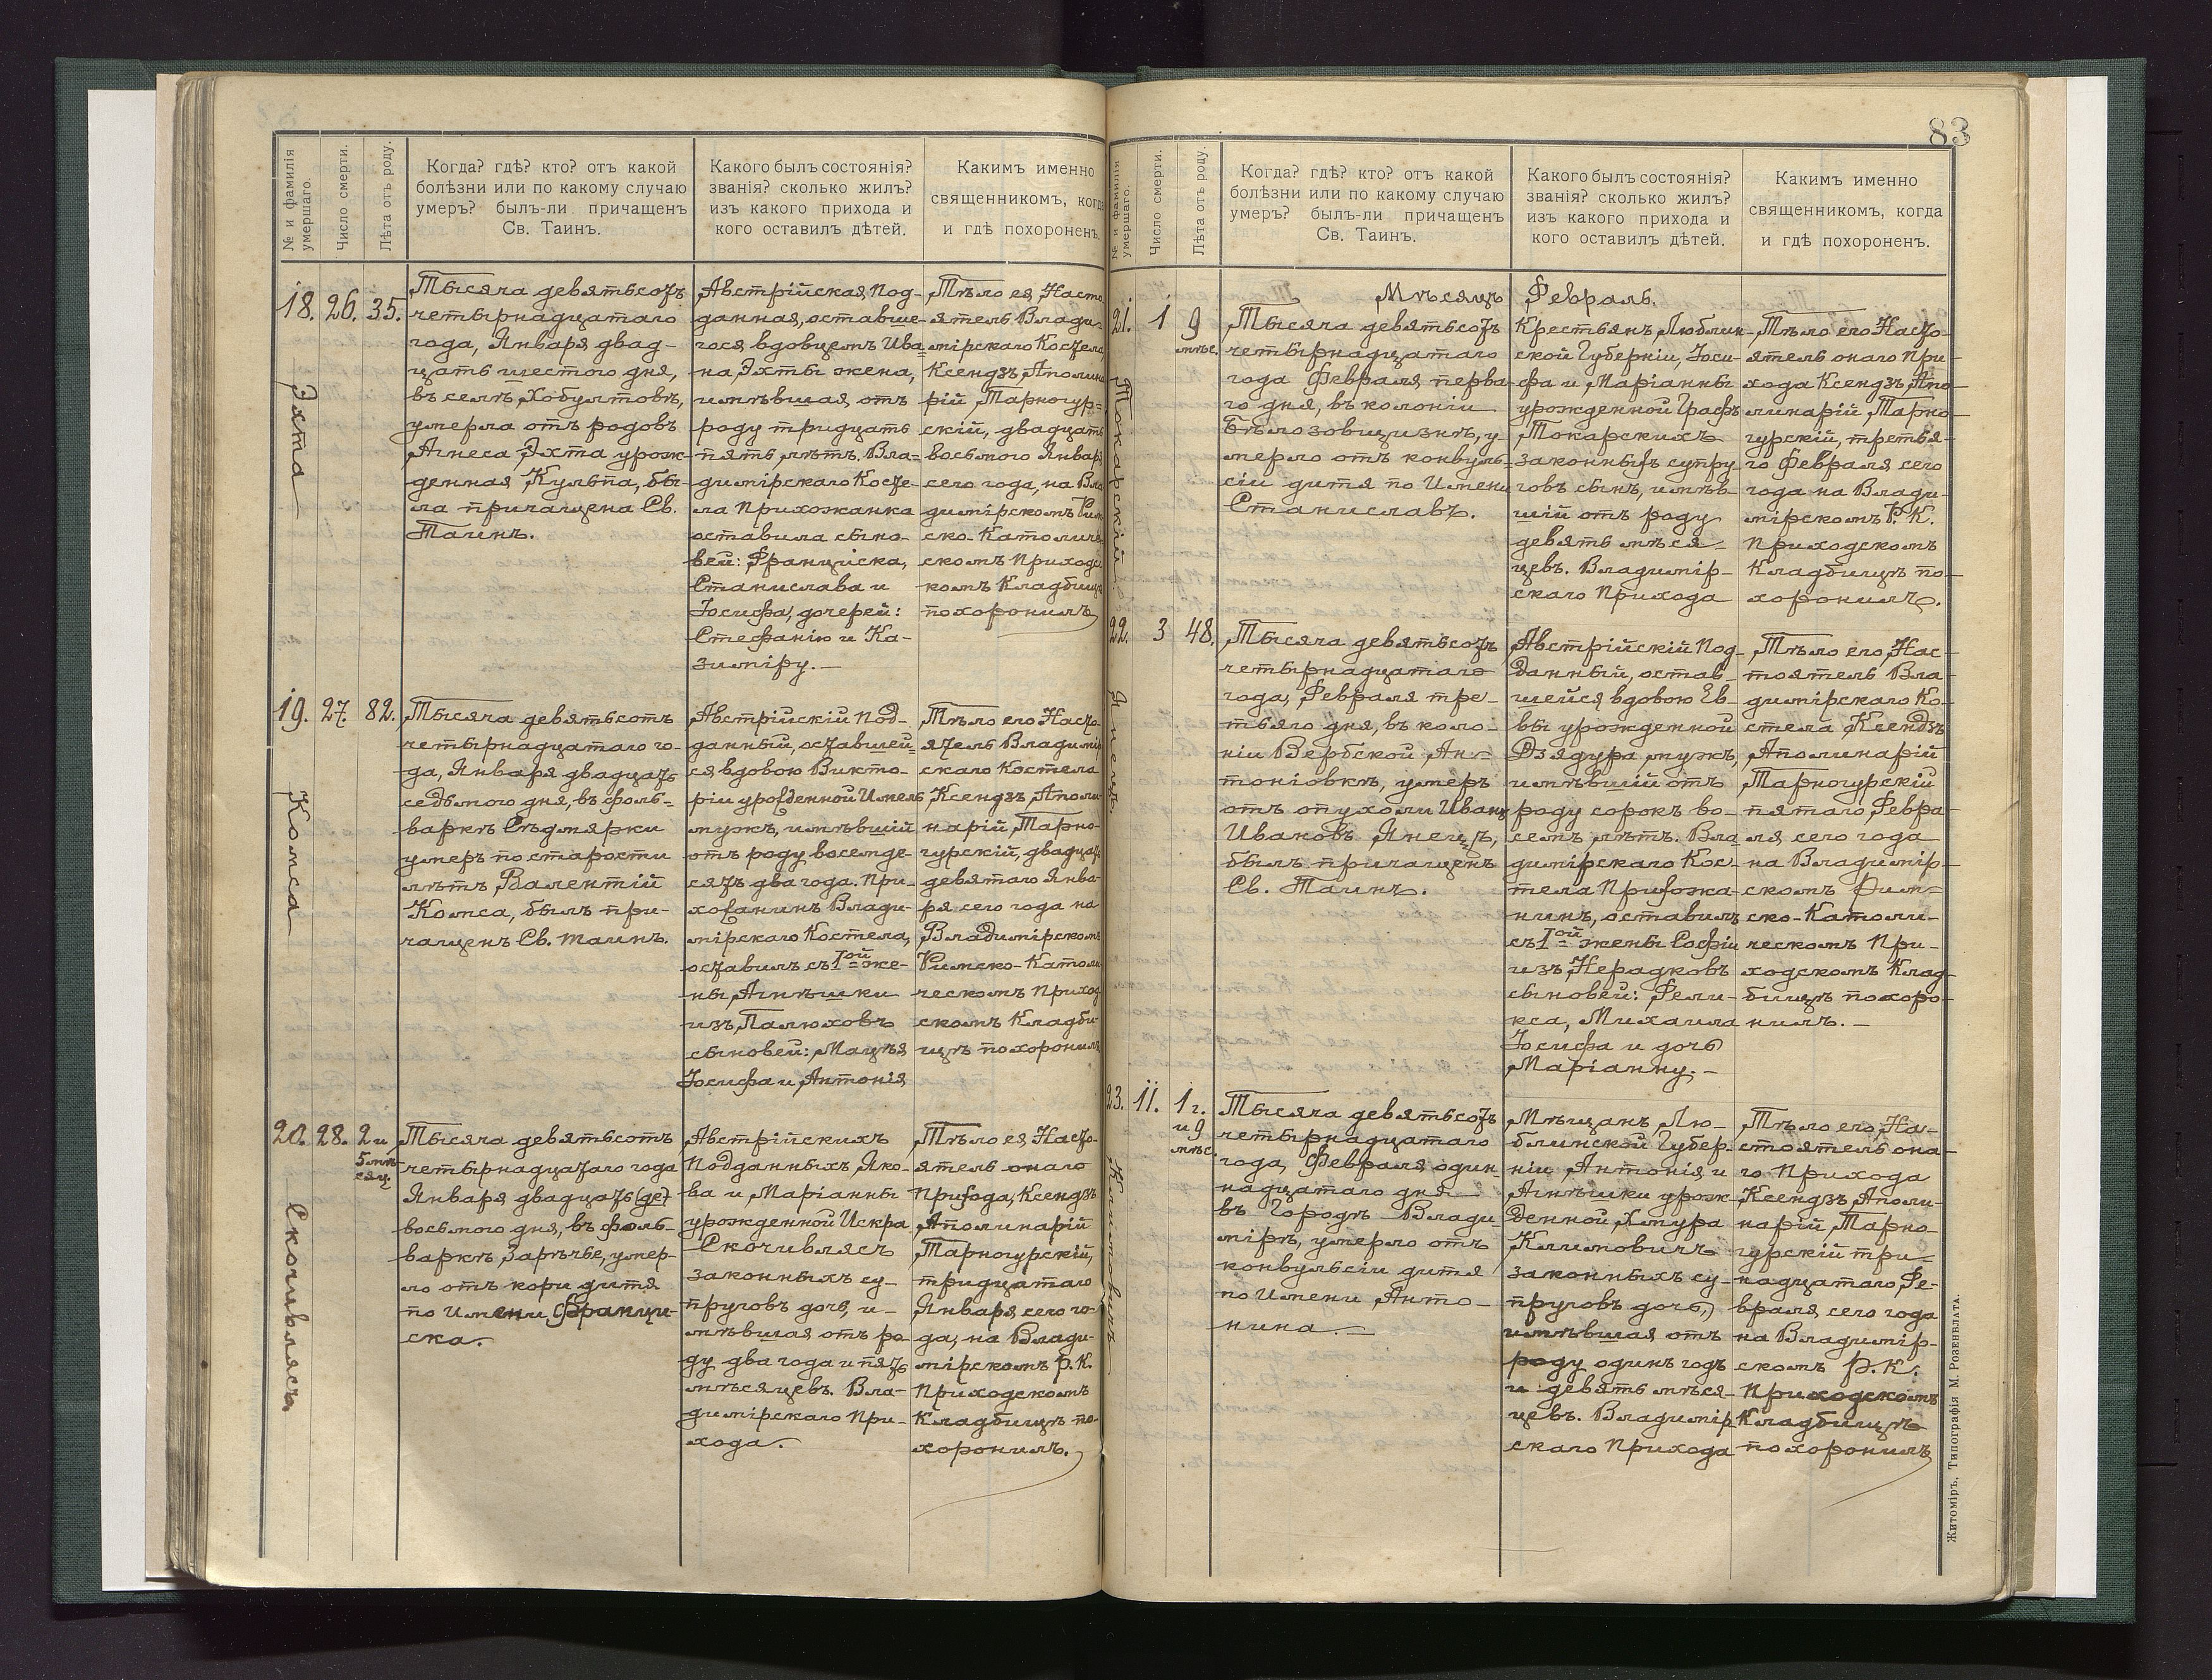 № и фамилія умершаго.
Число смерти.
Лѣта отъ роду.
Когда? гдѣ? кто? отъ какой
болѣзни или по какому случаю
умеръ? былъ-ли причащенъ
Св. Таинъ.
Какого былъ состоянія?
званія? сколько жилъ?
изъ какого прихода и
кого оставилъ дѣтей.
Какимъ именно
священникомъ, когда
и гдѣ похороненъ.
18.
26.
35.
Эхта
Тысяча девятьсотъ
четырнадцатаго
года, Января двад-
цать шестого дня,
въ селѣ, Хобултовѣ,
умерла отъ родовъ
Агнеса Эхта урож-
денная Кульпа, бы-
ла причащена Св.
Таинъ.
Австрійская Под-
данная, оставше-
гося вдовцемъ Ива-
на, Эхты жена,
имѣвшая отъ
роду тридцать
пять лѣтъ. Вла-
димірскаго Косте-
ла Прихожанка
оставила сыно-
вей: Францiска,
Станислава и
Іосифа, дочерей:
Стефанію и Ка-
зиміру. —
Тѣло ея, Насто
ятель Влади-
мірскаго Костела
Ксендзъ, Аполина
рій, Тарногур-
скій, двадцать
восьмого Января
сего года, на Вла
димірскомъ Рим
ско-Католиче
скомъ Приходс
комъ Кладбищѣ
похоронилъ
19.
27.
82.
Комса
Тысяча девятьсотъ
четырнадцатаго го-
да, Января двадцать
седьмого дня, въ фоль-
варкѣ Сѣдмярки
умеръ по старости
лѣтъ, Валентій
Комса, былъ при-
чащенъ Св. таинъ.
Австрійскій Под-
данный, оставшей-
ся вдовою Викто-
ріи урожденной Имель
мужъ, имѣвшій
отъ роду восемде-
сятъ два года. При-
хожанинъ Влади-
мірскаго Костела,
оставилъ съ I-ой же-
ны, Агнѣшки
изъ, Палюховъ
сыновей: Мацѣя,
Іосифа и Антонія
Тѣло его Насто-
ятель Владимір
скаго Костела
Ксендзъ, Аполи-
нарій, Тарно-
гурскій, двадцать
девятаго Янва-
ря сего года на
Владимірскомъ
Римско-Католи
ческомъ Приход
скомъ Кладби-
щѣ похоронилъ
20.
28.
2 и
5 мѣ-
сяц.
Скочивлясъ
Тысяча девятьсотъ
четырнадцатаго года
Января двадцать (де)
восьмого дня, въ фоль-
варкѣ, Зарѣчье, умер-
ло отъ кори дитя
по Имени Францы-
ска.
Австрійскихъ
Подданныхъ, Яко-
ва и Маріанны
урожденной Искра
Скочивлясъ
законныхъ су-
пруговъ дочь, и-
мѣвшая отъ ро-
ду два года и пять
мѣсяцевъ. Вла-
димірскаго При-
хода.
Тѣло ея, Насто-
ятель онаго
Прихода, Ксендзъ
Аполинарій
Тарногурскій,
тридцатаго
Января, сего го-
да, на Влади-
мірскомъ Р. К.
Приходскомъ
Кладбищѣ по-
хоронилъ.
83
№ и фамилія умершаго.
Число смерти.
Лѣта отъ роду.
Когда? гдѣ? кто? отъ какой
болѣзни или по какому случаю
умеръ? былъ-ли причащенъ
Св. Таинъ.
Какого былъ состоянія?
званія? сколько жилъ?
изъ какого прихода и
кого оставилъ дѣтей.
Какимъ именно
священникомъ, когда
и гдѣ похороненъ.
Мѣсяцъ Февраль.
21.
1
9
мѣс.
Токарскій.
Тысяча девятьсотъ
четырнадцатаго
года Февраля перва
го дня, въ колоніи
Бѣлозовщизнѣ, у
мерло отъ конвуль-
сіи дитя по Имени
Станиславъ.
Крестьянъ, Люблин-
ской Губерніи, Іоси-
фа и Маріанны
урожденной Графъ
Токарскихъ
законныхъ супру
говъ сынъ, имѣв-
шій отъ роду
девять мѣся-
цевъ. Владимір-
скаго Прихода
Тѣло его Насто-
ятель онаго При-
хода Ксендзъ, Апо-
линарій Тарно-
гурскій, третья-
го Февраля сего
года на Влади-
мірскомъ Р. К.
Приходскомъ
Кладбищѣ по-
хоронилъ.
22.
3
48.
Янецъ.
Тысяча девятьсотъ
четырнадцатаго
года, Февраля тре-
тьяго дня, въ коло-
ніи Вербской Ан-
тоніовкѣ, умеръ
отъ опухоли Иванъ
Ивановъ Янецъ,
былъ причащенъ
Св. Таинъ.
Австрійскій Под-
данный, остав-
шейся вдовою Ев-
вы урожденной
Дзядура, мужъ,
имѣвшій отъ
роду сорокъ во-
семъ лѣтъ. Вла
димірскаго Кос-
тела Прихожа-
нинъ, оставилъ
съ I-ой жены Софіи
изъ, Нерадковъ
сыновей: Фели-
кса, Михаила
Іосифа и дочь
Маріанну. —
Тѣло его, Нас-
тоятель Вла-
димірскаго Ко-
стела Ксендзъ
Аполинарій
Тарногурскій
пятаго Февра-
ля сего года
на Владимір-
скомъ Рим-
ско-Католи-
ческомъ При-
ходскомъ Клад-
бищѣ похоро-
нилъ. —
23.
11.
1 г.
и 9
мѣс.
Климовичъ
Тысяча девятьсотъ
четырнадцатаго
года, Февраля один-
надцатаго дня
въ Городѣ Влади-
мірѣ, умерло отъ
конвульсіи дитя
по Имени Анто-
нина. —
Мѣщанъ, Лю-
блинской Губер-
ніи, Антонія и
Агнѣшки урож-
денной, Хмура
Климовичъ
законныхъ су-
пруговъ дочь,
имѣвшая отъ
роду одинъ годъ
и девять мѣся-
цевъ. Владимір
скаго Прихода
Тѣло его, На-
стоятель она-
го Прихода
Ксендзъ Аполи-
нарій, Тарно-
гурскій три-
надцатаго Фе-
враля, сего года
на Владимір-
скомъ Р. К.
Приходскомъ
Кладбищѣ
похоронилъ
Житоміръ, Типографія М. Розенблата.